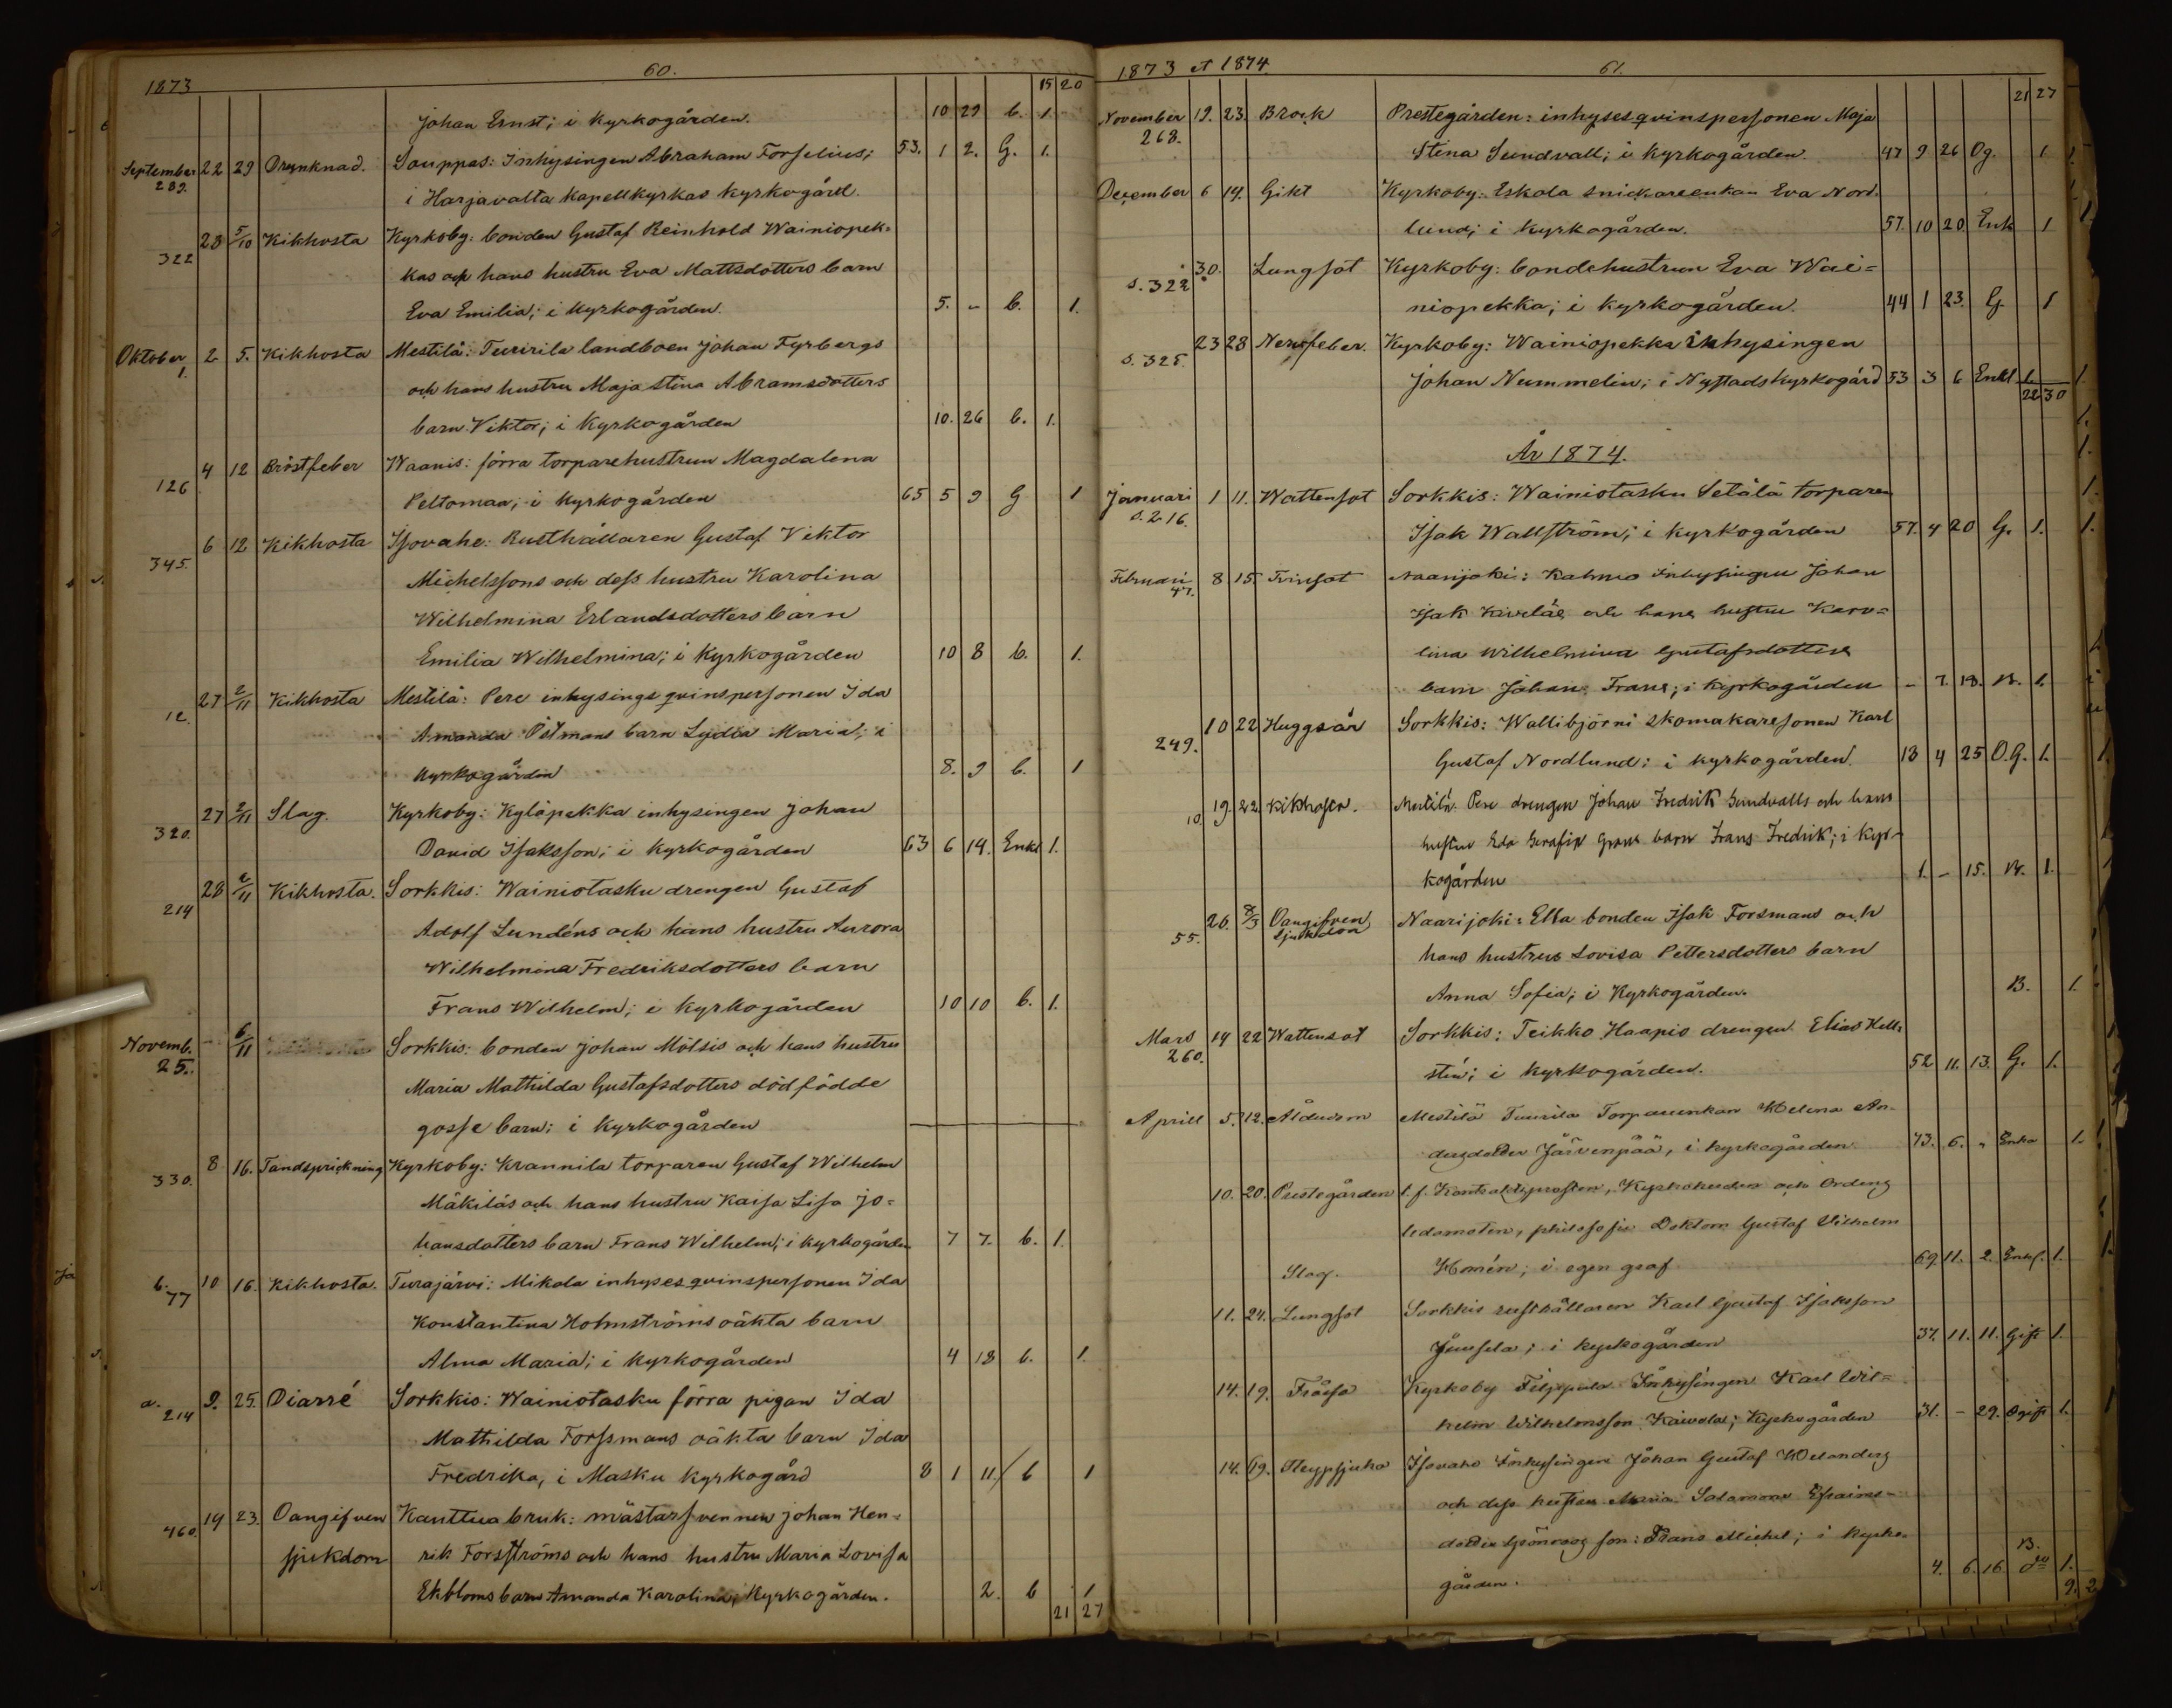 60.
1873
15 20
Johan Ernst; i kyrkogården. 10 29 b. 1.
September 22 29 Drunknad. Sauppas: Inhysingen Abraham Forselius; 53. 1 2. G. 1.
289. i Harjavalta kapellkyrkas kyrkogård
322 28 5/10 Kikhosta Kyrkoby: bonden Gustaf Reinhold Wainiopek=
kas och hans hustru Eva Mattsdotters barn
Eva Emilia; i kyrkogården. 5. - b. 1.
Oktober 2 5. Kikhosta Mestilä: Tuurila landboen Johan Fyrbergs
1. och hans hustru Maja Stina Abramsdotters
barn Viktor; i kyrkogården 10. 26 b. 1.
126 4 12 Bröstfeber Waanis: förra torparehustrun Magdalena
Peltomaa; i kyrkogården 65 5 9 G 1
345. 6 12 Kikhosta Isovahe: Rusthållaren Gustaf Viktor
Michelssons och dess hustru Karolina
Wilhelmina Erlandsdotters barn
Emilia Wilhelmina; i kyrkogården 10 8 b. 1.
12. 27 2/11 Kikhosta Mestilä: Pere inhysings qvinspersonen Ida
Amanda Östmans barn Lydia Maria; i
kyrkogården 8. 9 b. 1
320. 27 2/11 Slag. Kyrkoby: Kyläpekka inhysingen Johan
David Isaksson; i kyrkogården 63 6 14. Enkl 1.
214 28 2/11 Kikhosta. Sorkkis: Wainiotasku drengen Gustaf
Adolf Lundéns och hans hustru Aurora
Wilhelmina Fredriksdotters barn
Frans Wilhelm; i kyrkogården 10 10 b. 1.
Novemb. - 6/11 Sorkkis: bonden Johan Mölsis och hans hustru
25. Maria Mathilda Gustafsdotters dödfödde
gosse barn; i kyrkogården
330. 8 16. Tandsprickning Kyrkoby: Krannila torparen Gustaf Wilhelm
Mäkiläs och hans hustru Kaisa Lisa Jo=
hansdotters barn Frans Wilhelm; i kyrkogården 7 7. b. 1.
b. 77 10 16. Kikhosta. Turajärvi: Mikola inhyses qvinspersonen Ida
Konstantina Holmströms oäkta barn
Alma Maria; i kyrkogården 4 18 b. 1.
a. 214 9. 25. Diarré Sorkkis: Wainiotasku förra pigan Ida
Mathilda Forssmans oäkta barn Ida
Fredrika, i Masku kyrkogård 8 1 11. b 1
460. 19 23. Oangifven Kauttua bruk: mästarsvennen Johan Hen=
sjukdom rik Forsströms och hans hustru Maria Lovisa
Ekbloms barn Amanda Karolina; Kyrkogården. 2. b 1
21 27
1873 et 1874.
61.
21 27
November 19. 23. Brock Prestegården: inhyses qvinspersonen Maja
268. Stina Sundvall; i kyrkogården. 47 9 26 Og. 1.
December 6 14. Gikt Kyrkoby: Eskola snickareenkan Eva Nord.
lund; i kyrkogården. 57. 10 20 Enk 1
s. 322 30. Lungsot Kyrkoby: bondehustrun Eva Wai=
niopekka; i kyrkogården. 44 1 23. G. 1
s. 325. 23 28 Nervfeber. Kyrkoby: Wainiopekka inhysingen
Johan Nummelin; i Nystads kyrkogård 53 3 6 Enkl 1.
22 30
År 1874.
Januari 1 11. Wattensot Sorkkis: Wainiotasku Setälä torparen
s. 216. Isak Wallström; i kyrkogården 57. 4 20 G. 1.
Februari 8 15. Tvinsot Naarijoki: Kahma Inhysingen Johan
47. Isak Kiviläs och hans hustru Karo=
lina Wilhelmina Gustafsdotters
barn Johan Frans; i kyrkogården - 7. 18. B. 1.
249. 10 22 Huggsår Sorkkis: Wallibjörni skomakaresonen Karl
Gustaf Nordlund; i kyrkogården. 18 4 25 O.G. 1.
10. 19. 22. Kikhosta. Mestilä. Pere drengen Johan Fredrik Sundvalls och hans
hustru Eda Serafia Grans barn Frans Fredrik; i kyr-
kogården 1. - 15. B. 1.
55. 26. 8/3 Oangifven sjukdom Naarijoki: Ella bonden Isak Forsmans och
hans hustrus Lovisa Pettersdotters barn
Anna Sofia; i Kyrkogården. B. 1.
Mars 14 22 Wattensot Sorkkis: Teikko Haapio drengen Elias Hell=
260. stén; i kyrkogården. 52 11. 13. G. 1.
Aprill 5. 12. Ålderdom Mestilä Tuurila Torpareenkan Helena An-
dersdotter Järvenpää, i kyrkogården 73. 6. " Enka 1.
10. 20. Prestegården t.f. Kontraktsprosten, Kyrkoherden och Ordens
ledamoten, philosofie Doktorn Gustaf Wilhelm
Slag. Homén; i egen graf 69. 11. 2. Enkl. 1.
11. 24. Lungsot Sorkkis rusthållaren Karl Gustaf Isaksson
Juusela; i kyrkogården 37. 11. 11. Gift 1.
14. 19. Frossa Kyrkoby Filppula Inhysingen Karl Wil=
helm Wilhelmsson Kaivola; Kyrkogården 31. - 29. Ogift 1.
14. 19. Isovahe Inhysingen Johan Gustaf Welanders
och dess hustru Maria Salomona Efraims-
dotter Grönroos son: Frans Michel; i kyrko-
gården. 4. 6. 16. B. 1.
9. 2